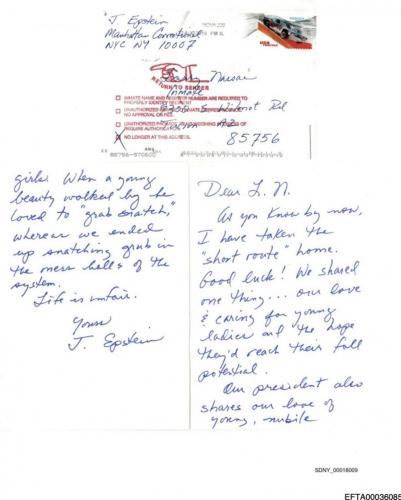 J. Epstein
Manhattan Correctional
NYC NY 10007
NOVA 220
USA
RETURN TO SENDER
Larry Nassar
Inmate
9300 S. Wilmot Rd
Tucson AZ
85756
INMATE NAME AND REGISTER NUMBER ARE REQUIRED TO
PROPERLY IDENTIFY RECIPIENT
UNAUTHORIZED
NO APPROVAL OR FEE.
UNAUTHORIZED
REQUIRE AUTHORIZ
X NO LONGER AT THIS ADDRESS.
girls. When a young
beauty walked by he
loved to "grab snatch,"
whereas we ended
up snatching grub in
the mess halls of the
system.
Life is unfair.
Yours
J. Epstein
Dear L. N.
As you know by now,
I have taken the
"short route" home.
Good luck! We shared
one thing... our love
& caring for young
ladies and the hope
they'd reach their full
potential.
Our president also
shares our love of
young, nubile
SDNY_00016009
EFTA00036085